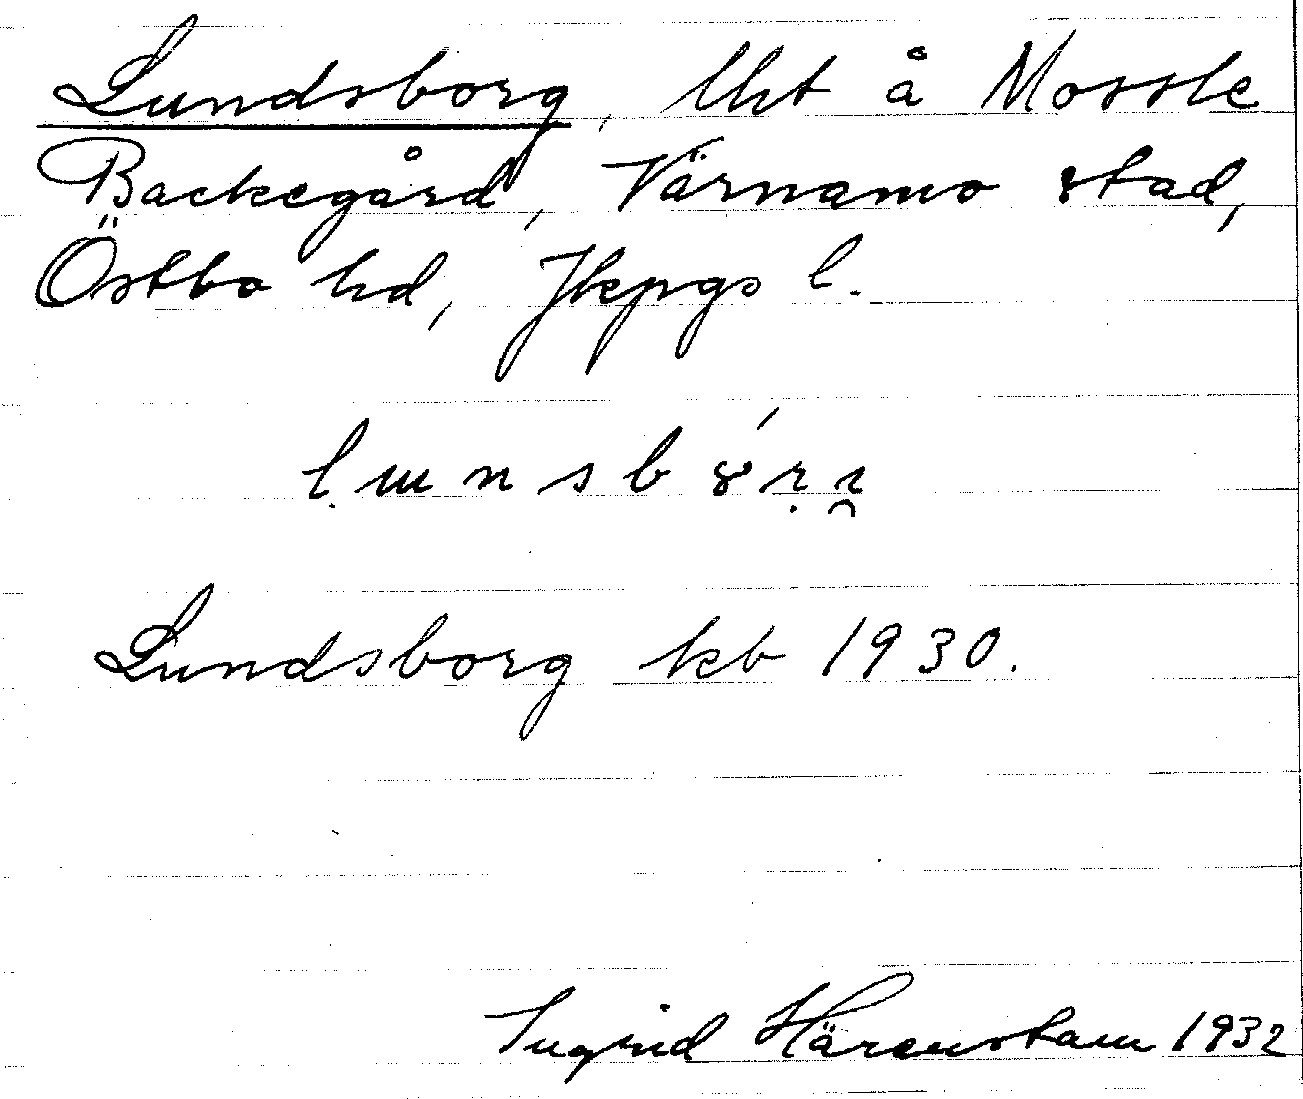 Lundsborg, lht å Mossle
Backegård, Värnamo stad,
Östbo hd, Jkpgs l.
Lundsborg kb 1930.
Ingrid Härenstam 1932